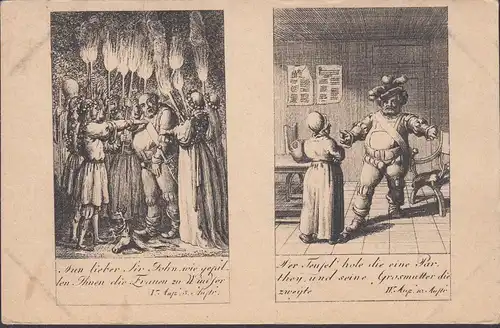 Nun lieber Sir John, wie gefal
len Ihnen die Frauen zu Windsor
V. Aufz. 5. Auftr.
Der Teufel hole die eine Par
they, und seine Grosmutter die
zweyte
IV. Aufz. 10. Auftr.